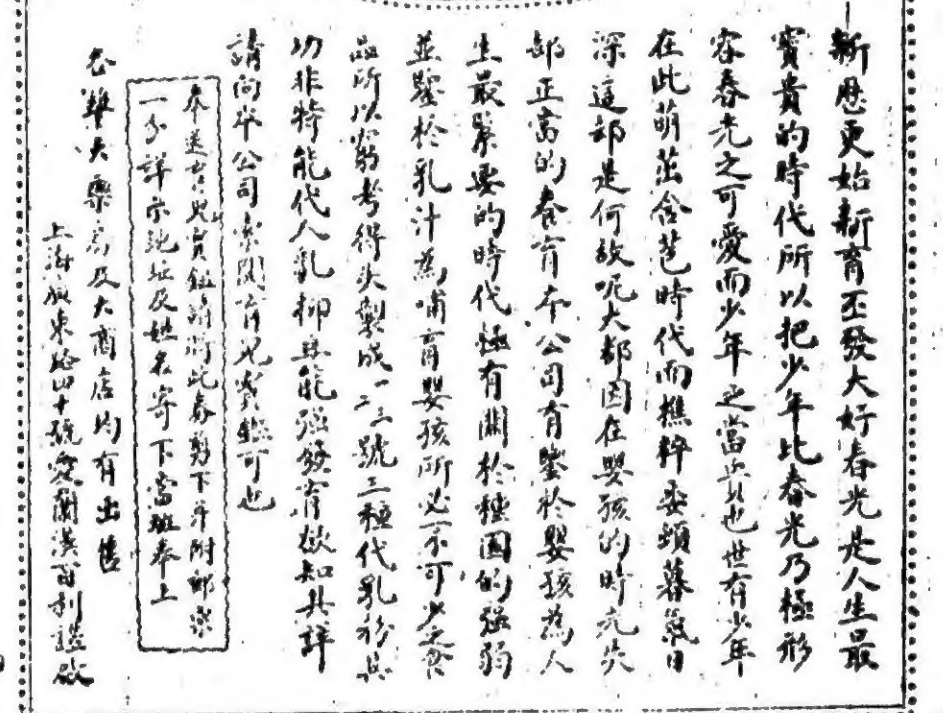 新厯更始新育丕發大好春光是人生最
寶貴的時代所以把少年比春光乃極形
容春光之可愛而少年之當貴也世有少年
在此萌茁含芭時代而樵粹委頓暮氣日
深這都是何故呢大都因在嬰孩的時光失
卻正當的養育本公司有鑒於嬰孩為人
生最緊要的時代極有關於種國的强弱
並鑒於乳汁為哺育嬰孩所必不可少之食
品所以窮考得失製成一二三號三種代乳粉其
功非特能代人乳抑且能强發育欲知其詳
請向本公司索閱育兒寶鑑可也
奉送育兒寶鑑請將此券剪下并附郵票
一分詳示地址及姓名寄下當班奉上
各華大藥房及大商店均有出售
上海廣東路四十號愛蘭漢百利謹啟